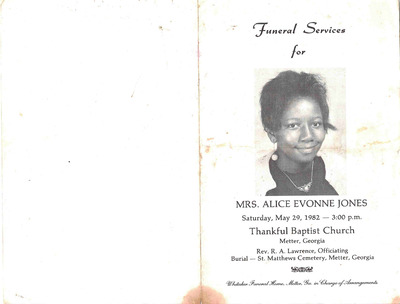 Funeral Services
for
MRS. ALICE EVONNE JONES
Saturday, May 29, 1982 — 3:00 p.m.
Thankful Baptist Church
Metter, Georgia
Rev. R. A. Lawrence, Officiating
Burial — St. Matthews Cemetery, Metter, Georgia
Whitaker Funeral Home, Metter, Ga. in Charge of Arrangements